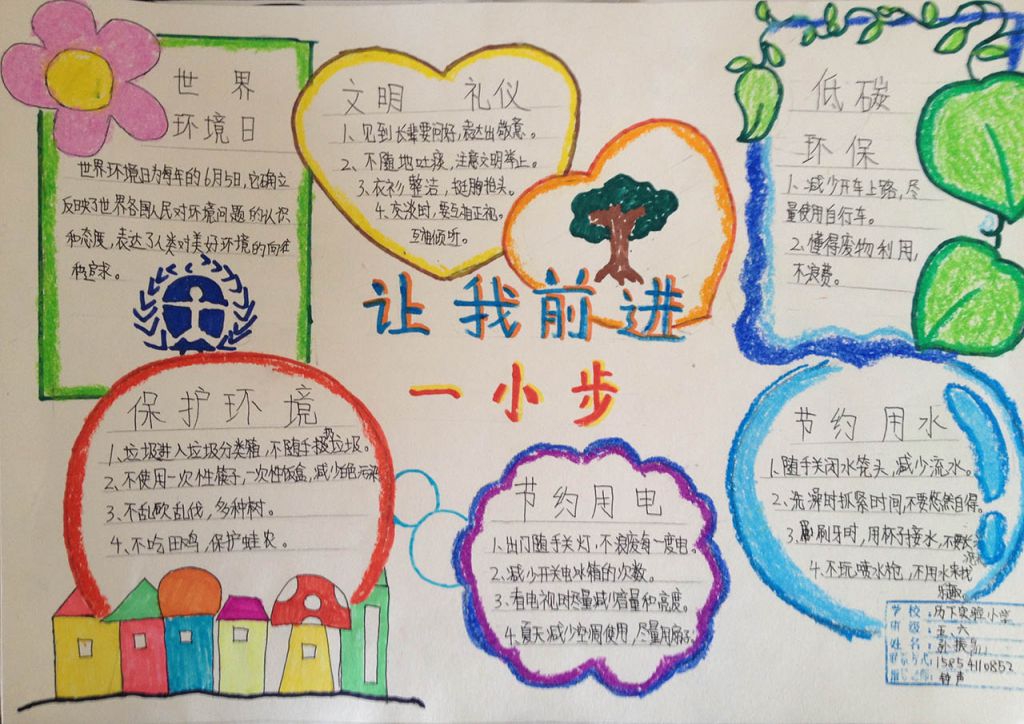 世 界
环境日
世界环境日为每年的6月5日,它确立
反映了世界各国人民对环境问题的认识
和态度,表达了人类对美好环境的向往
和追求。
文明 礼仪
1、见到长辈要问好,表达出敬意。
2、不随地吐痰,注意文明举止。
3、衣衫整洁,挺胸抬头。
4、交谈时,要互相正视。
互相倾听。
低碳
环保
1、减少开车上路,尽
量使用自行车。
2、懂得废物利用,
不浪费。
让我前进
一小步
保护环境
1、垃圾进入垃圾分类箱,不随手扔垃圾。
2、不使用一次性筷子,一次性饭盒,减少白色污染
3、不乱砍乱伐,多种树。
4、不吃田鸡,保护蛙农。
节约用电
1、出门随手关灯,不浪费每一度电。
2、减少开关电冰箱的次数。
3、看电视时尽量减少音量和亮度。
4、夏天减少空调使用,尽量用扇子
节约用水
1、随手关闭水笼头,减少流水。
2、洗澡时抓紧时间,不要悠然自得。
3、刷牙时,用杯子接水,不要长
流
4、不玩喷水枪,不用水来找
乐趣。
学校:历下实验小学
班级:五、六
姓名:苏振
联系方式:15854110852
指导老师:钟声